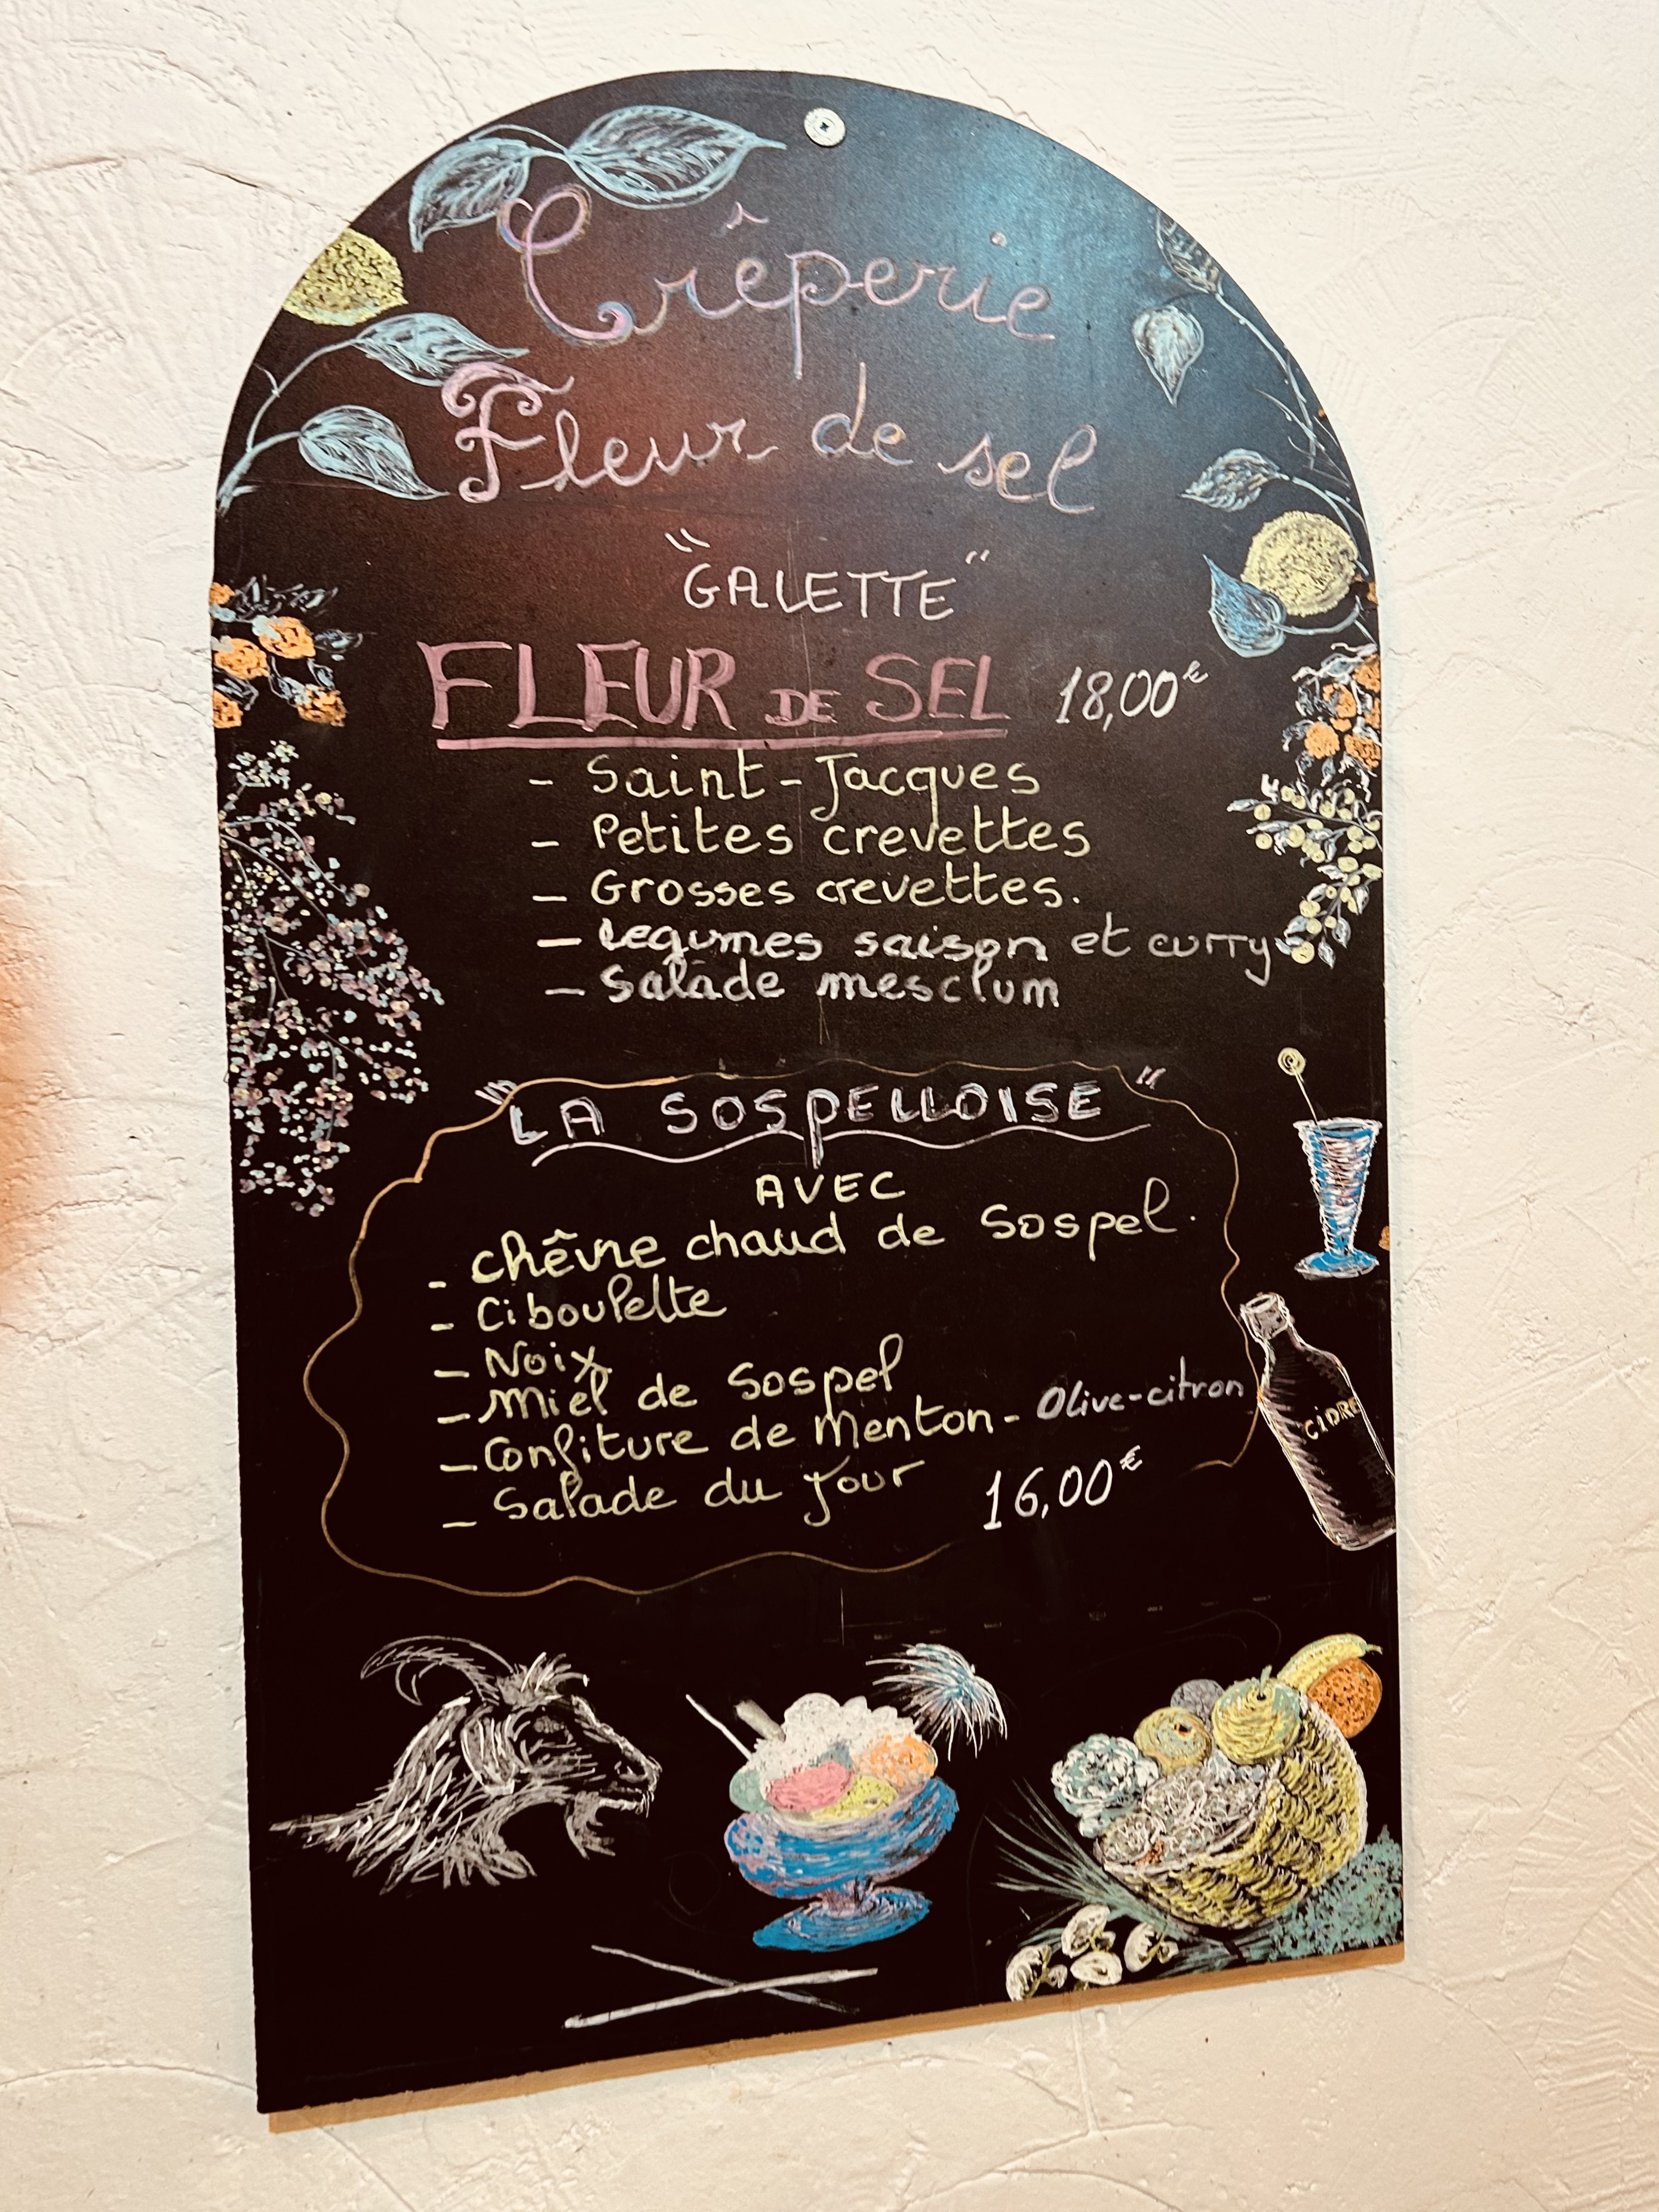 Crêperie
Fleur de sel
"GALETTE"
FLEUR DE SEL 18,00€
- Saint-Jacques
- Petites crevettes
- Grosses crevettes.
- Legumes saison et curry
- Salade mesclum
"LA SOSPELLOISE"
AVEC
- Chêvre chaud de Sospel.
- Ciboulette
- Noix
- Miel de Sospel
- Confiture de Menton - Olive-citron
- Salade du Jour 16,00€
CIDRE